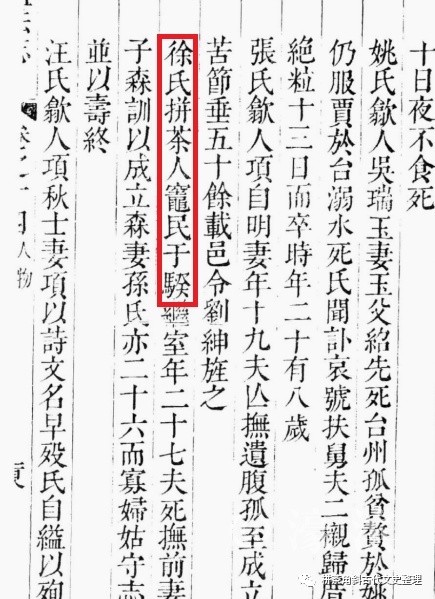 十日夜不食死
姚氏歙人吳瑞玉妻玉父紹先死台州孤貧贅於姚
仍服賈於台溺水死氏聞訃哀號扶舅夫二櫬歸
絶粒十三日而卒時年二十有八歲
張氏歙人項自明妻年十九夫亾撫遺腹孤至成立
苦節垂五十餘載邑令劉紳旌之
徐氏拼茶人竈民于騤繼室年二十七夫死撫前妻
子森訓以成立森妻孫氏亦二十六而寡婦姑守志
並以壽終
汪氏歙人項秋士妻項以詩文名早歿氏自縊以殉
人物
角斜古代文史整理